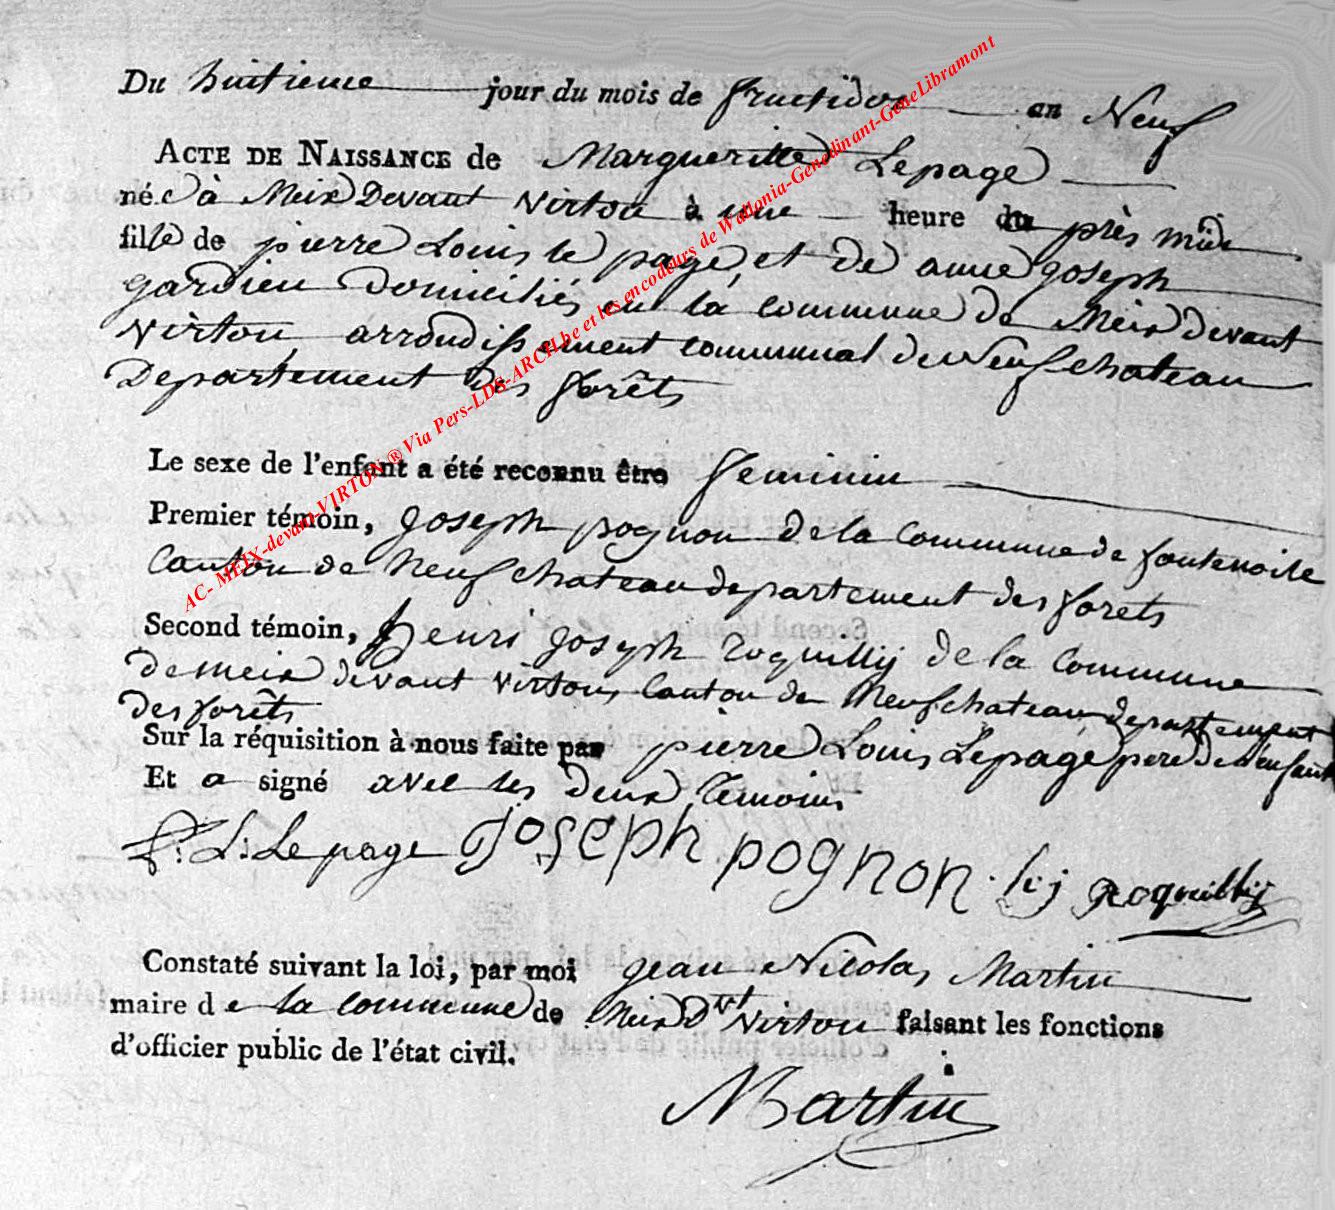 Du huitieme jour du mois de fructidor an Neuf
ACTE DE NAISSANCE de Margueritte Lepage
née à Meix Devant Virton à une heure du près midi
fille de pierre Louis le page et de anne joseph
gardien Domiciliés en la commune de Meix devant
Virton, arrondissement communal de Neufchateau
Departement des forêts
Le sexe de l'enfant a été reconnu être feminin
Premier témoin, joseph pognon de la Commune de fontenoile
Canton de Neufchateau departement des forets
Second témoin, henri joseph roquilly de la Commune
de meix devant Virton, Canton de Neufchateau departement
des forêts
Sur la réquisition à nous faite par pierre Louis Lepage pere de l'enfant
Et a signé avec les deux temoins
P: L: Lepage joseph pognon h: j roquilly
Constaté suivant la loi, par moi jean Nicolas Martin
maire de la commune de Meix Dvt Virton faisant les fonctions
d'officier public de l'état civil.
Martin
AC- MEIX-devant-VIRTON ® Via Pers-LDS-ARCH.be et les encodeurs de Wallonia-Genedinant-GeneLibramont